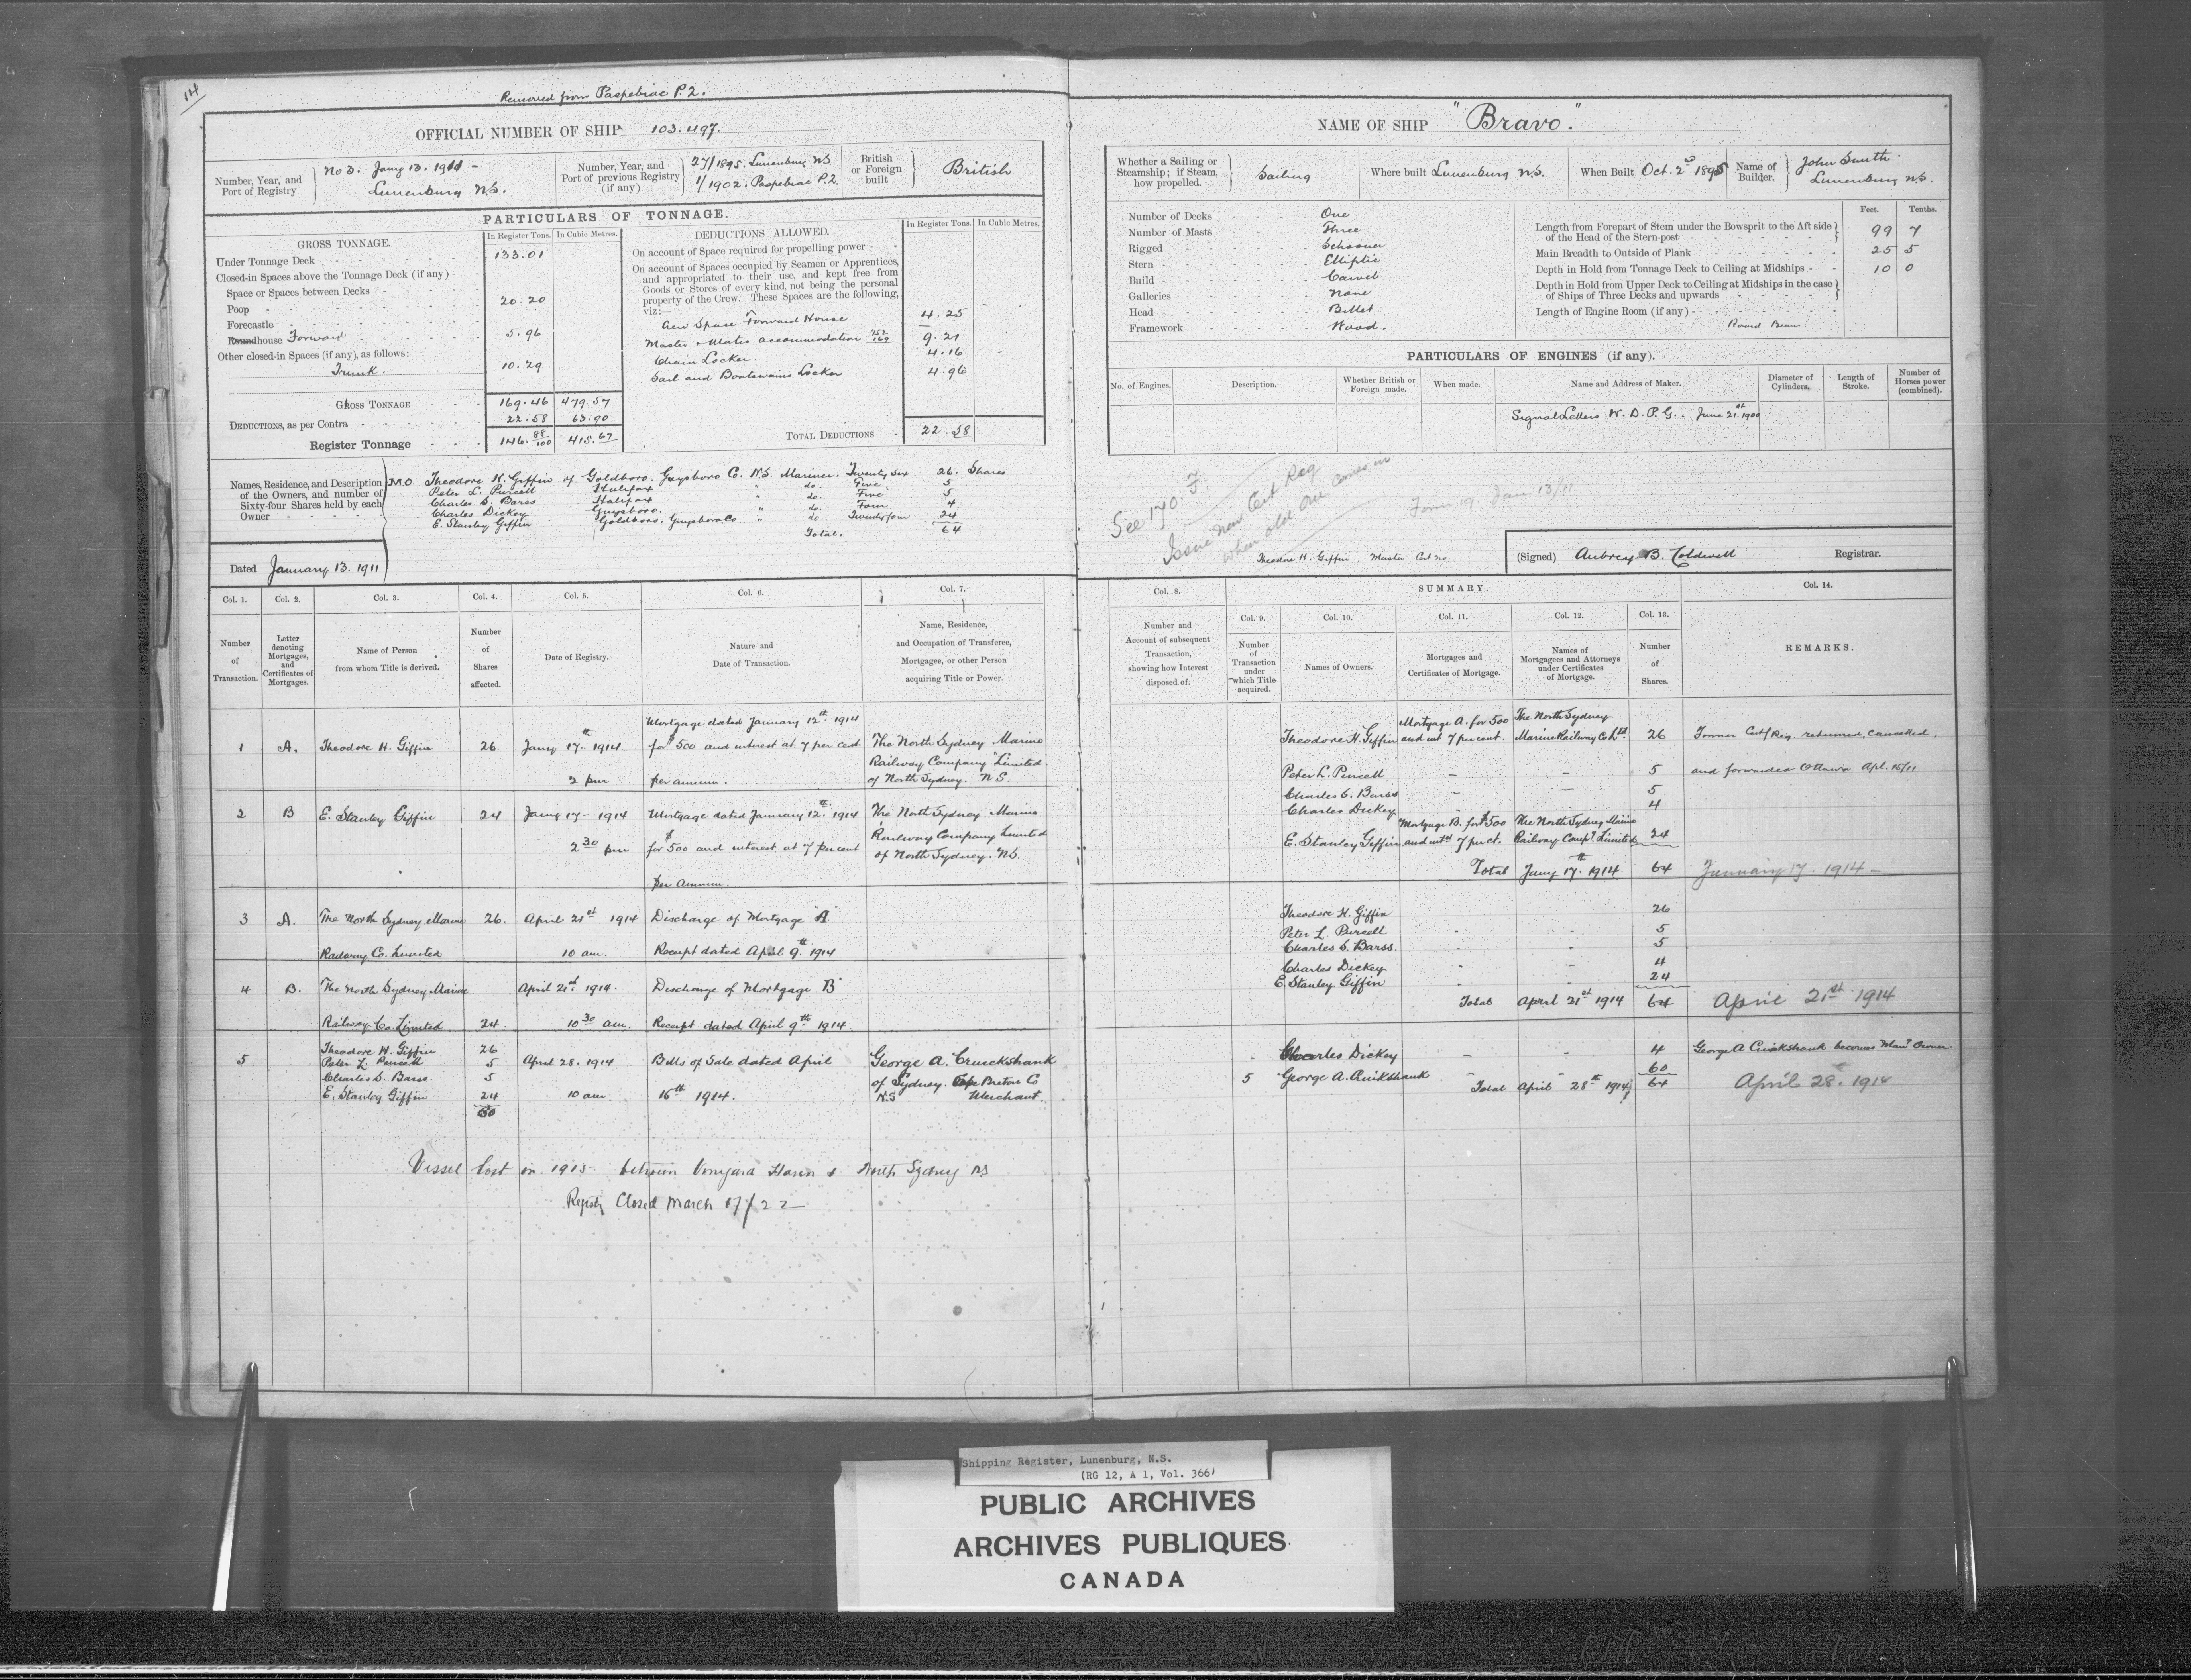 14
Removed from Paspebiac P.2.
OFFICIAL NUMBER OF SHIP 103.497.
Number, Year, and Port of Registry } No 3. Jany 13. 1911 - Lunenburg N.S.
Number, Year, and Port of previous Registry (if any) } 27/1895. Lunenburg NS 1/1902. Paspebiac P.2.
British or Foreign built } British
PARTICULARS OF TONNAGE.
GROSS TONNAGE. In Register Tons. In Cubic Metres.
Under Tonnage Deck 133.01
Closed-in Spaces above the Tonnage Deck (if any)
Space or Spaces between Decks
Poop 20.20
Forecastle
Roundhouse Forward 5.96
Other closed-in Spaces (if any), as follows:
Trunk. 10.29
GROSS TONNAGE 169.46 479.57
DEDUCTIONS, as per Contra 22.58 63.90
Register Tonnage 146.88/100 415.67
DEDUCTIONS ALLOWED. In Register Tons. In Cubic Metres.
On account of Space required for propelling power
On account of Spaces occupied by Seamen or Apprentices,
and appropriated to their use, and kept free from
Goods or Stores of every kind, not being the personal
property of the Crew. These Spaces are the following,
viz:—
Crew Space Forward House 4.25
Master & Mates accommodation 9.21
Chain Locker. 4.16
Sail and Boatswains Locker 4.96
TOTAL DEDUCTIONS 22.58
Names, Residence, and Description of the Owners, and number of Sixty-four Shares held by each Owner
M.O. Theodore H. Giffin of Goldboro. Guysboro Co. N.S. Mariner. Twenty Six 26. Shares
Peter L. Purcell Halifax " do. Five 5
Charles S. Barss Halifax " do. Five 5
Charles Dickey Guysboro. " do. Four 4
E. Stanley Giffin Goldboro. Guysboro Co " do. Twenty four 24
Total. 64
Dated January 13. 1911
NAME OF SHIP "Bravo."
Whether a Sailing or Steamship; if Steam, how propelled. } Sailing
Where built Lunenburg N.S.
When Built Oct. 2nd 1895
Name of Builder. } John Smith. Lunenburg N.S.
Number of Decks One
Number of Masts Three
Rigged Schooner
Stern Elliptic
Build Carvel
Galleries None
Head Billet
Framework Wood.
Feet. Tenths.
Length from Forepart of Stem under the Bowsprit to the Aft side of the Head of the Stern-post 99 7
Main Breadth to Outside of Plank 25 5
Depth in Hold from Tonnage Deck to Ceiling at Midships 10 0
Depth in Hold from Upper Deck to Ceiling at Midships in the case of Ships of Three Decks and upwards
Length of Engine Room (if any)
Round Beam
PARTICULARS OF ENGINES (if any).
No. of Engines. Description. Whether British or Foreign made. When made. Name and Address of Maker. Diameter of Cylinders. Length of Stroke. Number of Horses power (combined).
Signal Letters
June 21st 1900
See 170. F.
Issue New Cert Reg
when old One comes in
Form 19. Jan 13/11
Theodore H. Giffin. Master Cert no
(Signed) Aubrey B. Coldwell Registrar.
Col. 1. Col. 2. Col. 3. Col. 4. Col. 5. Col. 6. Col. 7.
Number of Transaction.
Letter denoting Mortgages, and Certificates of Mortgages.
Name of Person from whom Title is derived.
Number of Shares affected.
Date of Registry.
Nature and Date of Transaction.
Name, Residence, and Occupation of Transferee, Mortgagee, or other Person acquiring Title or Power.
1 A. Theodore H. Giffin 26 Jany 17th 1914 2 pm Mortgage dated January 12th 1914
for $500 and interest at 7 per cent
per annum.
The North Sydney Marine
Railway Company Limited
of North Sydney. N S.
2 B E. Stanley Giffin 24 Jany 17- 1914 2 30 pm Mortgage dated January 12th 1914
for $500 and interest at 7 per cent
per annum.
The North Sydney Marine
Railway Company Limited
of North Sydney. N.S.
3 A. The North Sydney Marine 26. April 21st 1914 Discharge of Mortgage "A"
Railway Co. Limited 10 am. Receipt dated April 9th 1914
4 B. The North Sydney Marine April 21st 1914. Discharge of Mortgage "B"
Railway Co Limited 24. 10 30 am. Receipt dated April 9th 1914.
5 Theodore H. Giffin 26
Peter L. Purcell 5 April 28. 1914 Bills of Sale dated April
Charles S. Barss 5
E. Stanley Giffin 24 10 am 16th 1914.
60
George A. Cruickshank
of Sydney. Cape Breton Co
N.S Merchant.
Vessel lost in 1915 between Vineyard Haven & North Sydney NS
Registry Closed March 17/22
Col. 8. SUMMARY. Col. 14.
Col. 9. Col. 10. Col. 11. Col. 12. Col. 13.
Number and Account of subsequent Transaction, showing how Interest disposed of.
Number of Transaction under which Title acquired.
Names of Owners.
Mortgages and Certificates of Mortgage.
Names of Mortgagees and Attorneys under Certificates of Mortgage.
Number of Shares.
REMARKS.
Theodore H. Giffin Mortgage A. for 500 and int 7 per cent. The North Sydney Marine Railway Co Ltd. 26 Former Cert/Reg. returned, cancelled,
Peter L. Purcell - - 5 and forwarded Ottawa Apl. 15/11
Charles S. Barss - - 5
Charles Dickey - 4
E. Stanley Giffin Mortgage B. for $500 and int 7 per ct. The North Sydney Marine Railway Compy Limited 24
Total Jany 17th 1914 64 January 17. 1914 -
Theodore H. Giffin 26
Peter L. Purcell - - 5
Charles S. Barss. - - 5
Charles Dickey - - 4
E. Stanley Giffin - - 24
Total April 21st 1914 64 April 21st 1914
Charles Dickey - - 4 George A Cruickshank becomes Man'g Owner.
5 George A. Cruikshank - - 60
Total April 28th 1914 64 April 28. 1914
Shipping Register, Lunenburg, N.S.
(RG 12, A 1, Vol. 366)
PUBLIC ARCHIVES
ARCHIVES PUBLIQUES
CANADA